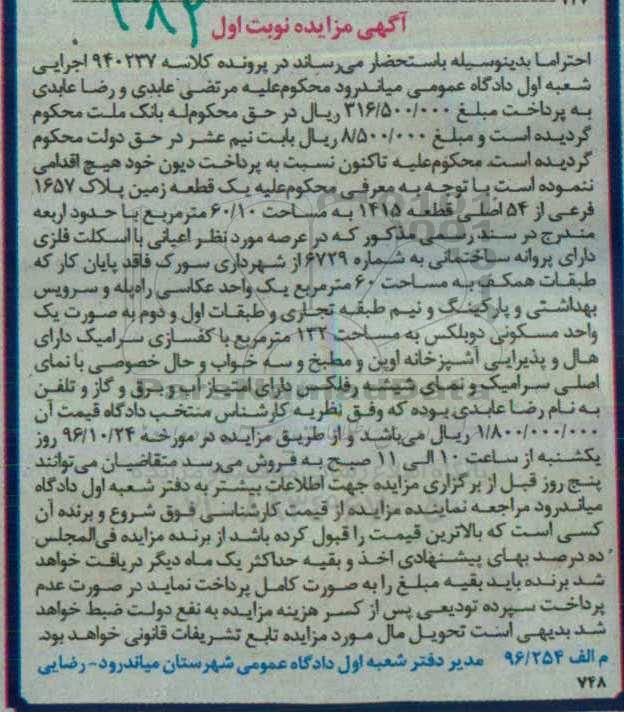 ۳۸۴
آگهی مزایده نوبت اول
احتراما بدینوسیله باستحضار می‌رساند در پرونده کلاسه ۹۴۰۲۳۷ اجرایی
شعبه اول دادگاه عمومی میاندرود محکوم‌علیه مرتضی عابدی و رضا عابدی
به پرداخت مبلغ ۳۱۶/۵۰۰/۰۰۰ ریال در حق محکوم‌له بانک ملت محکوم
گردیده است و مبلغ ۸/۵۰۰/۰۰۰ ریال بابت نیم عشر در حق دولت محکوم
گردیده است. محکوم‌علیه تاکنون نسبت به پرداخت دیون خود هیچ اقدامی
ننموده است با توجه به معرفی محکوم‌علیه یک قطعه زمین پلاک ۱۶۵۷
فرعی از ۵۴ اصلی قطعه ۱۴۱۵ به مساحت ۶۰/۱۰ مترمربع با حدود اربعه
مندرج در سند رسمی مذکور که در عرصه مورد نظر اعیانی با اسکلت فلزی
دارای پروانه ساختمانی به شماره ۶۷۲۹ از شهرداری سورک فاقد پایان کار که
طبقات همکف به مساحت ۶۰ مترمربع یک واحد عکاسی راه‌پله و سرویس
بهداشتی و پارکینگ و نیم طبقه تجاری و طبقات اول و دوم به صورت یک
واحد مسکونی دوبلکس به مساحت ۱۳۲ مترمربع با کفسازی سرامیک دارای
هال و پذیرایی آشپزخانه اوپن و مطبخ و سه خواب و حال خصوصی با نمای
اصلی سرامیک و نمای شیشه رفلکس دارای امتیاز آب و برق و گاز و تلفن
به نام رضا عابدی بوده که وفق نظریه کارشناس منتخب دادگاه قیمت آن
۱/۸۰۰/۰۰۰/۰۰۰ ریال می‌باشد و از طریق مزایده در مورخه ۹۶/۱۰/۲۴ روز
یکشنبه از ساعت ۱۰ الی ۱۱ صبح به فروش می‌رسد متقاضیان می‌توانند
پنج روز قبل از برگزاری مزایده جهت اطلاعات بیشتر به دفتر شعبه اول دادگاه
میاندرود مراجعه نماینده مزایده از قیمت کارشناسی فوق شروع و برنده آن
کسی است که بالاترین قیمت را قبول کرده باشد از برنده مزایده فی‌المجلس
ده درصد بهای پیشنهادی اخذ و بقیه حداکثر یک ماه دیگر دریافت خواهد
شد برنده باید بقیه مبلغ را به صورت کامل پرداخت نماید در صورت عدم
پرداخت سپرده تودیعی پس از کسر هزینه مزایده به نفع دولت ضبط خواهد
شد بدیهی است تحویل مال مورد مزایده تابع تشریفات قانونی خواهد بود.
م الف ۹۶/۲۵۴ مدیر دفتر شعبه اول دادگاه عمومی شهرستان میاندرود- رضایی
۷۴۸